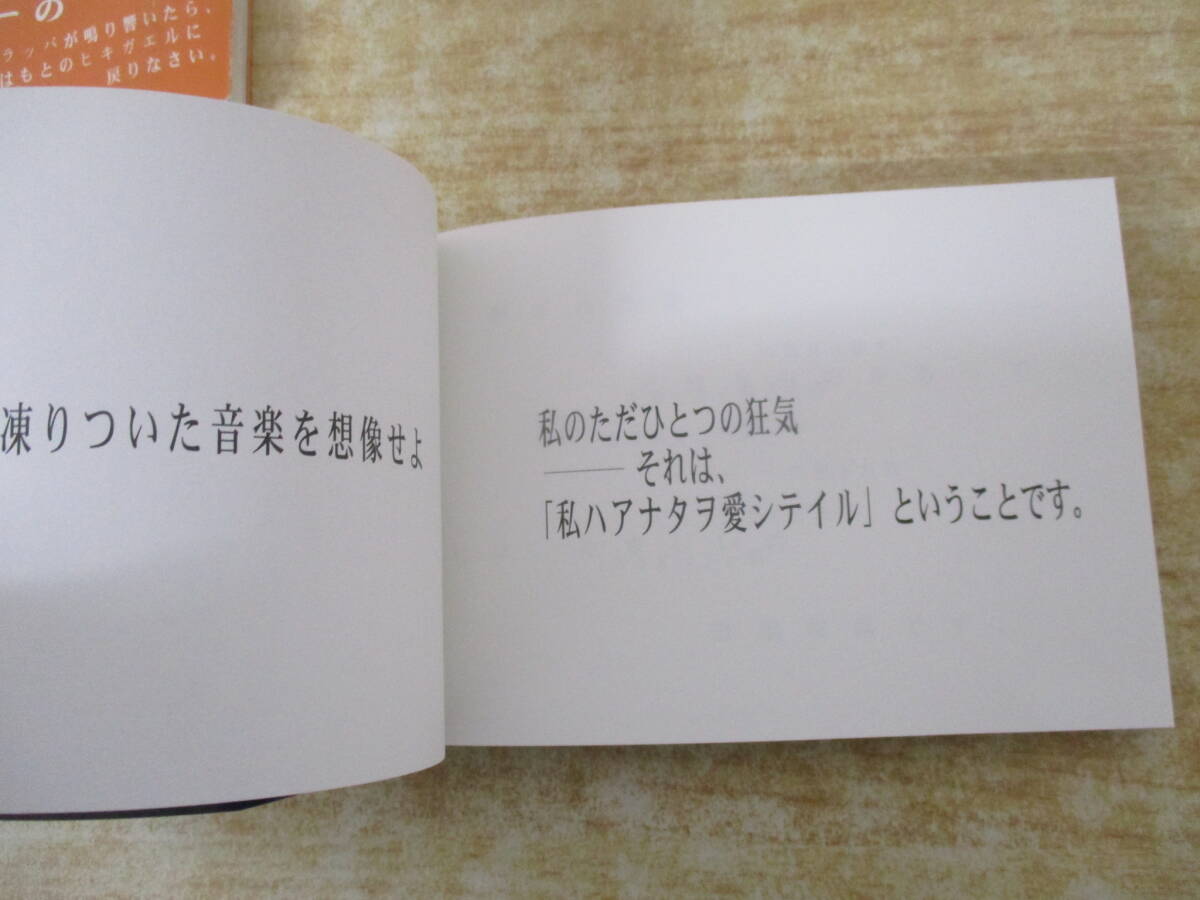 ーの
ラッパが鳴り響いたら、
はもとのヒキガエルに
戻りなさい。
凍りついた音楽を想像せよ
私のただひとつの狂気
―― それは、
「私ハアナタヲ愛シテイル」ということです。